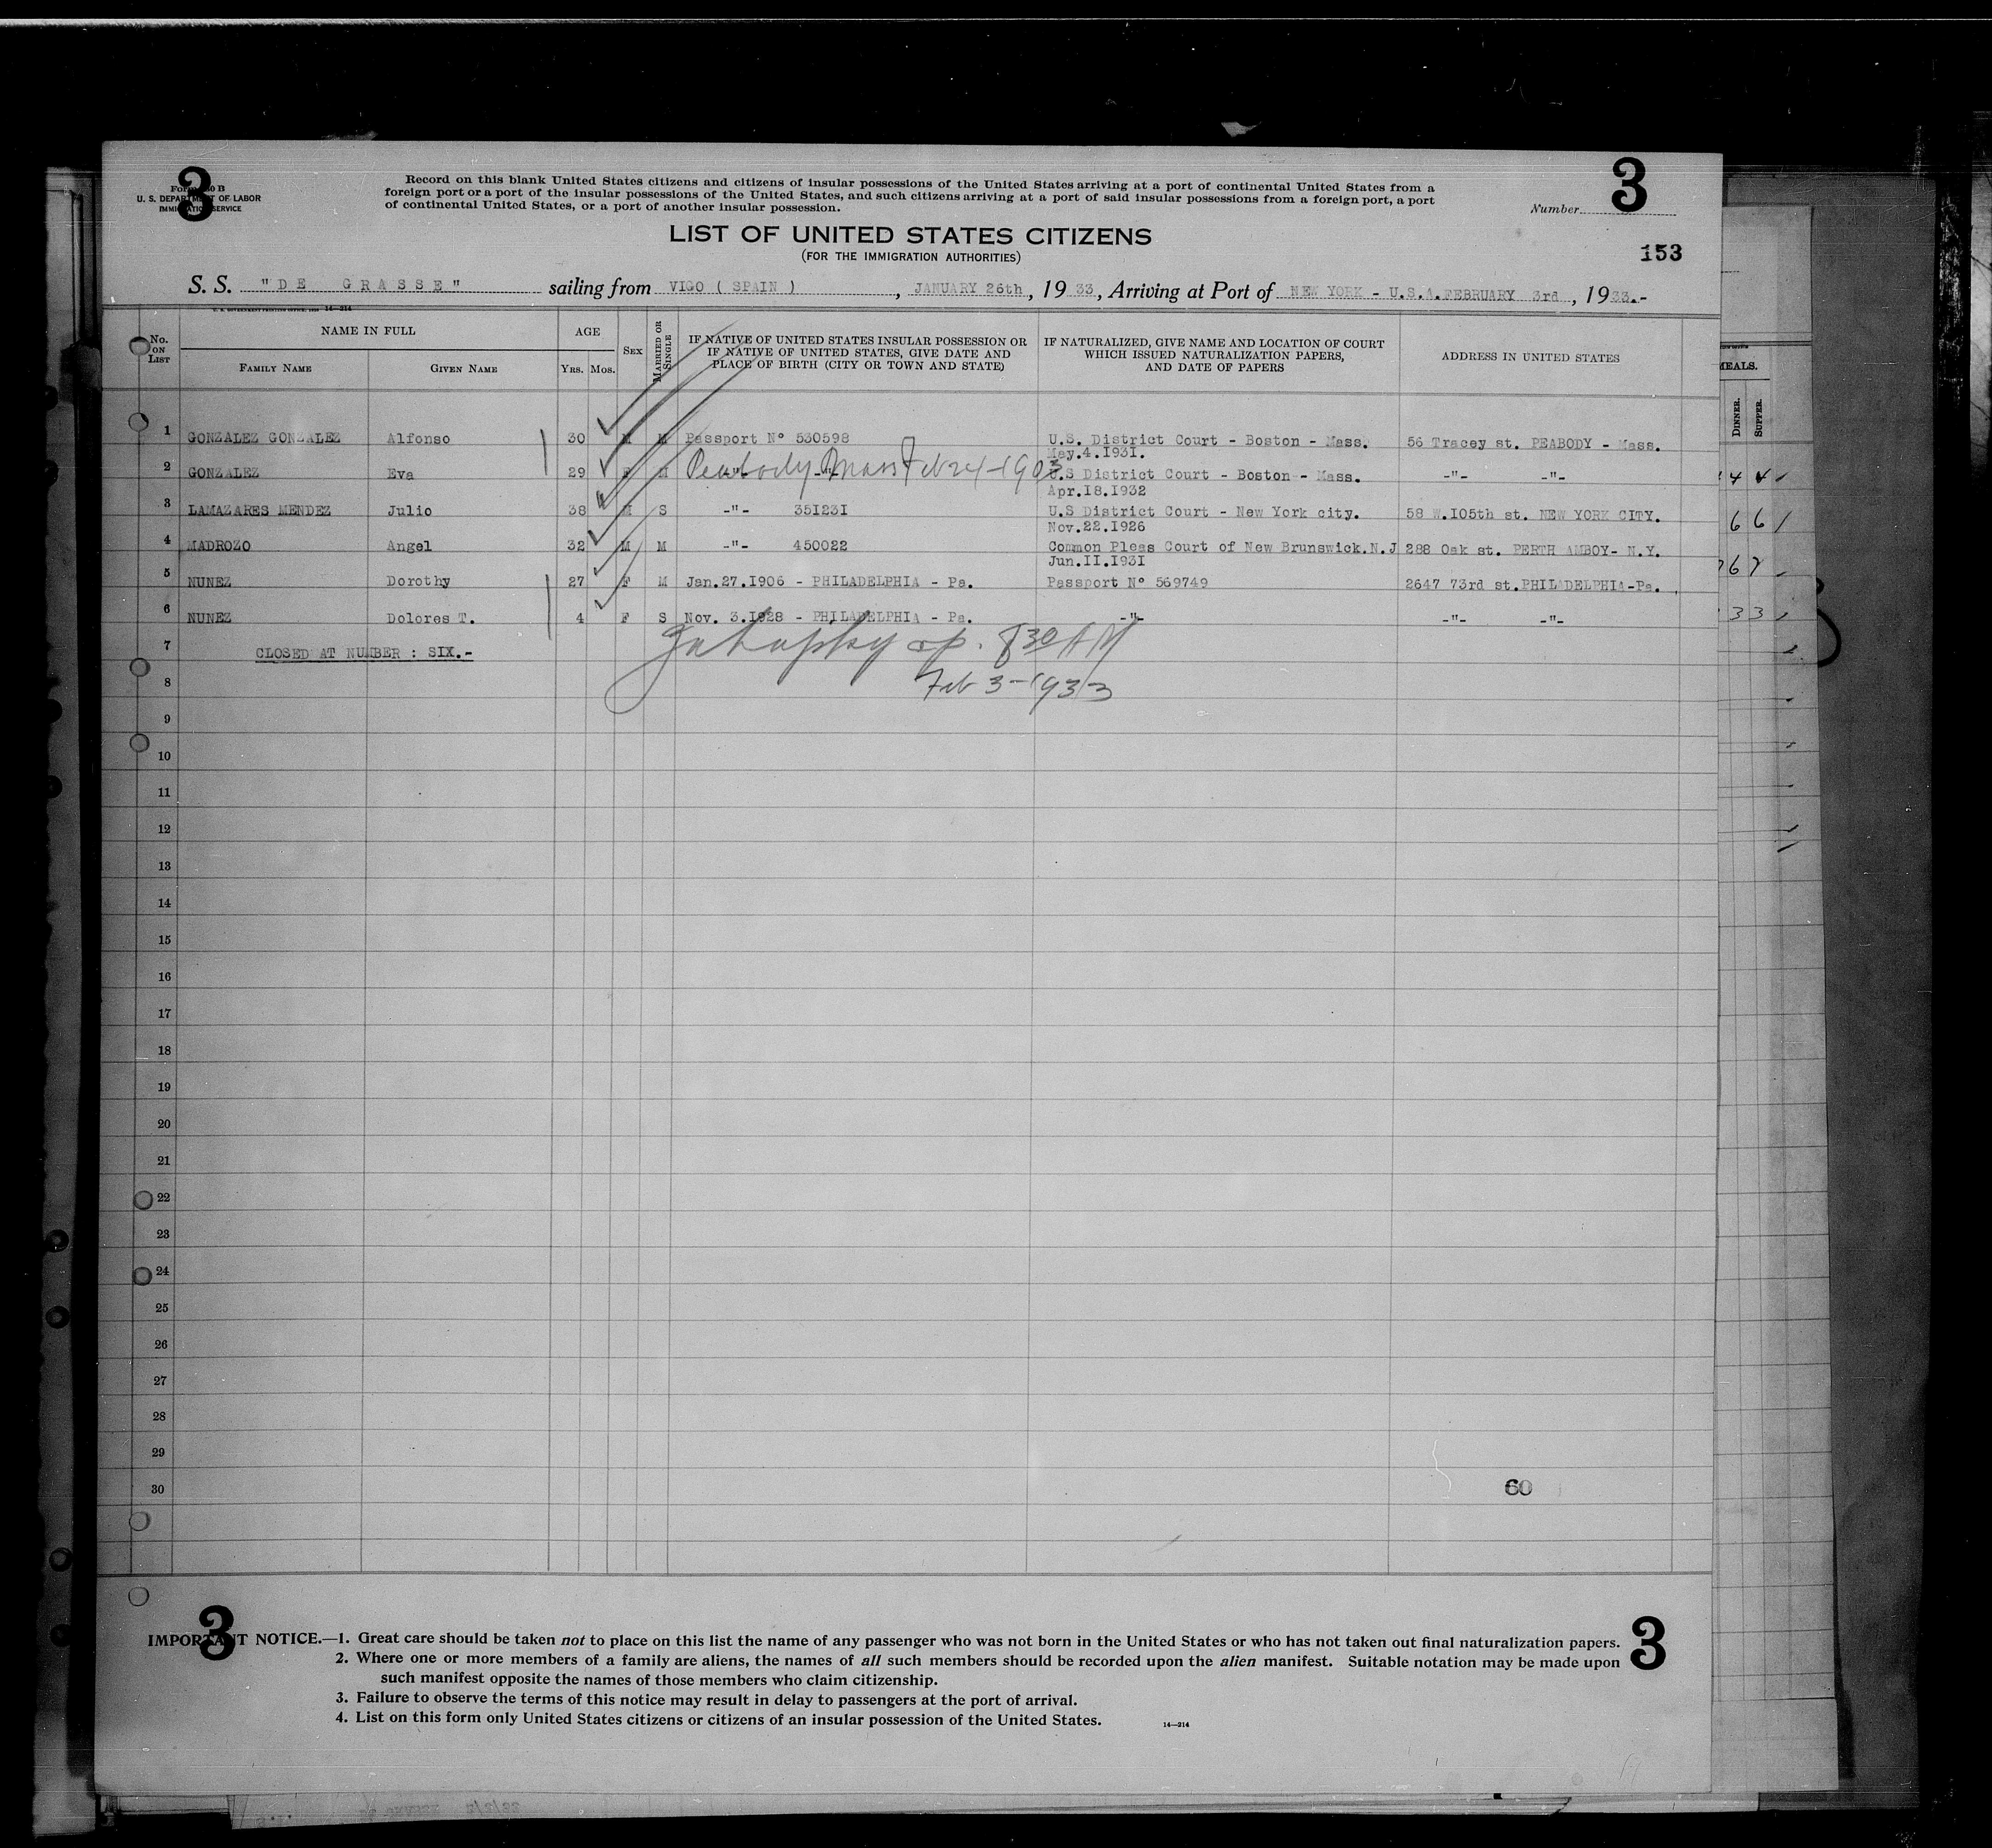 3 3
Form 630 B
U. S. DEPARTMENT OF LABOR
IMMIGRATION SERVICE
Record on this blank United States citizens and citizens of insular possessions of the United States arriving at a port of continental United States from a
foreign port or a port of the insular possessions of the United States, and such citizens arriving at a port of said insular possessions from a foreign port, a port
of continental United States, or a port of another insular possession.
Number
LIST OF UNITED STATES CITIZENS
(FOR THE IMMIGRATION AUTHORITIES)
153
S. S. "DE GRASSE" sailing from VIGO ( SPAIN ) , JANUARY 26th , 19 33, Arriving at Port of NEW YORK - U.S.A. FEBRUARY 3rd , 19 33.-
14—214
No. ON LIST NAME IN FULL FAMILY NAME GIVEN NAME AGE YRS. MOS. SEX MARRIED OR SINGLE IF NATIVE OF UNITED STATES INSULAR POSSESSION OR IF NATIVE OF UNITED STATES, GIVE DATE AND PLACE OF BIRTH (CITY OR TOWN AND STATE) IF NATURALIZED, GIVE NAME AND LOCATION OF COURT WHICH ISSUED NATURALIZATION PAPERS, AND DATE OF PAPERS ADDRESS IN UNITED STATES
MEALS.
DINNER. SUPPER.
1 GONZALEZ GONZALEZ Alfonso 30 M M Passport Nº 530598 U.S. District Court - Boston - Mass. 56 Tracey st. PEABODY - Mass.
May.4.1931.
2 GONZALEZ Eva 29 F M Peabody Mass Feb 24-1903 U.S District Court - Boston - Mass. -"- -"-
Apr.18.1932
3 LAMAZARES MENDEZ Julio 38 M S -"- 351231 U.S District Court - New York city. 58 W.105th st. NEW YORK CITY.
Nov.22.1926
4 MADROZO Angel 32 M M -"- 450022 Common Pleas Court of New Brunswick.N.J 288 Oak st. PERTH AMBOY- N.Y.
Jun.11.1931
5 NUNEZ Dorothy 27 F M Jan.27.1906 - PHILADELPHIA - Pa. Passport Nº 569749 2647 73rd st.PHILADELPHIA-Pa.
6 NUNEZ Dolores T. 4 F S Nov. 3.1928 - PHILADELPHIA - Pa. -"- -"- -"-
7 CLOSED AT NUMBER : SIX.-
8 30 AM
8 Feb 3-1933
9
10
11
12
13
14
15
16
17
18
19
20
21
22
23
24
25
26
27
28
29
30 60
3 3
IMPORTANT NOTICE.—1. Great care should be taken not to place on this list the name of any passenger who was not born in the United States or who has not taken out final naturalization papers.
2. Where one or more members of a family are aliens, the names of all such members should be recorded upon the alien manifest. Suitable notation may be made upon
such manifest opposite the names of those members who claim citizenship.
3. Failure to observe the terms of this notice may result in delay to passengers at the port of arrival.
4. List on this form only United States citizens or citizens of an insular possession of the United States.
14—214